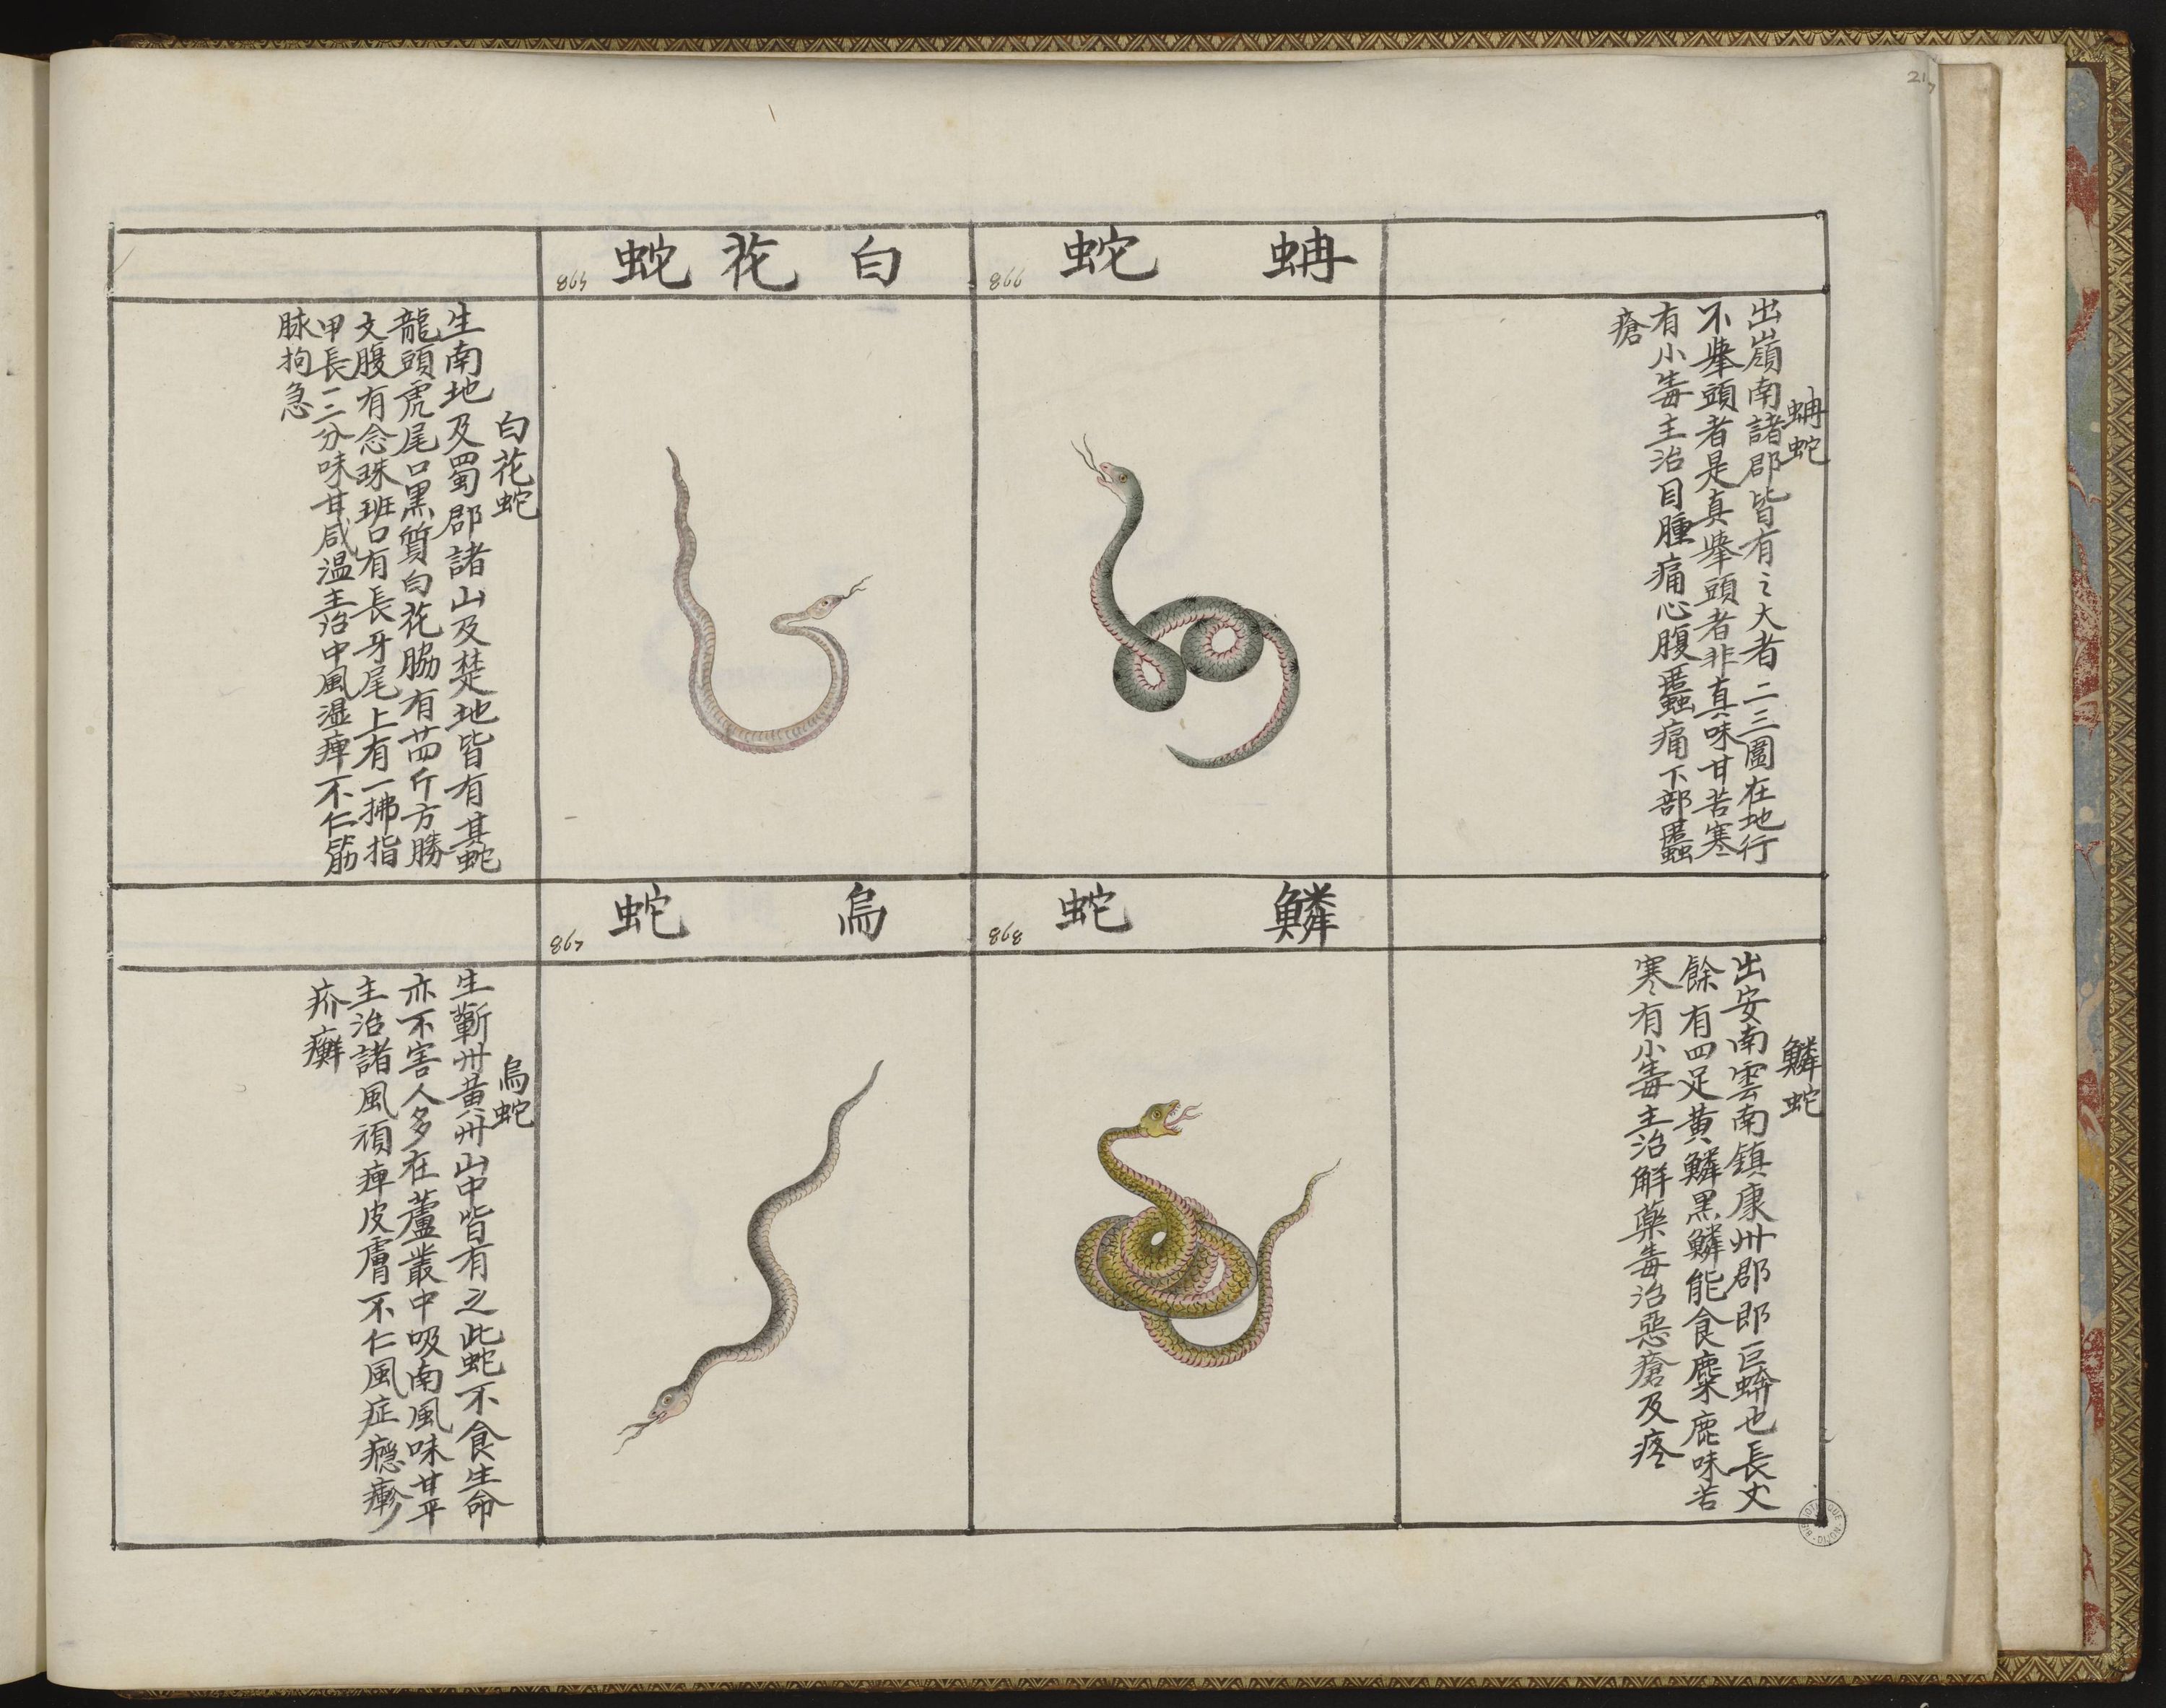 蚺蛇
蚺蛇
出嶺南諸郡皆有之大者二三圍在地行
不舉頭者是真舉頭者非真味甘苦寒
有小毒主治目腫痛心腹䘌痛下部䘌
瘡
866
白花蛇
白花蛇
生南地及蜀郡諸山及楚地皆有其蛇
龍頭虎尾口黑質白花脇有廿四斤方勝
文腹有念珠班口有長牙尾上有一拂指
甲長一二分味甘咸温主治中風湿痺不仁筋
脉拘急
865
鱗蛇
鱗蛇
出安南雲南鎮康州郡郎巨蟒也長丈
餘有四足黄鱗黑鱗能食麋鹿味苦
寒有小毒主治解藥毒治惡瘡及疼
868
烏蛇
烏蛇
生蘄州黄州山中皆有之此蛇不食生命
亦不害人多在蘆叢中吸南風味甘平
主治諸風頑痺皮膚不仁風症癮瘮
疥癬
867